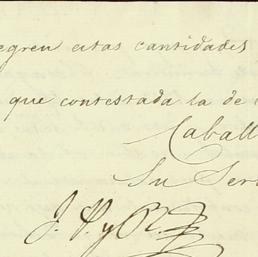 egren estas cantidades
que contestada la de
Caball
Su Ser
J. P. y R.